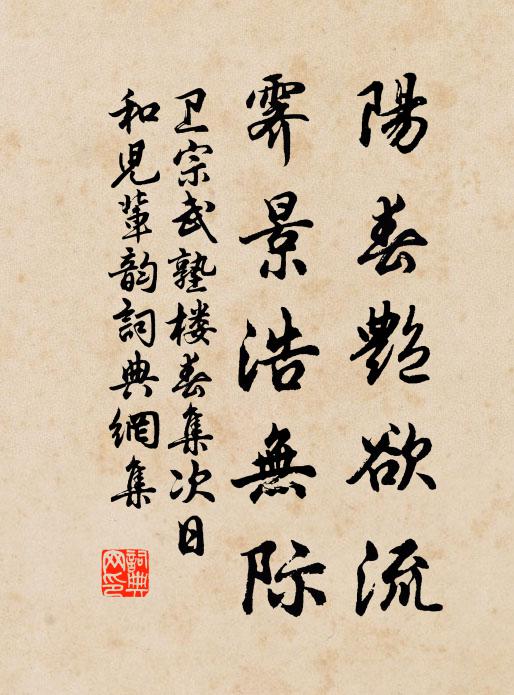 陽春艷欲流
霽景浩無际
卫宗武塾楼春集次日
和児輩韵詞典網集
詞典网印